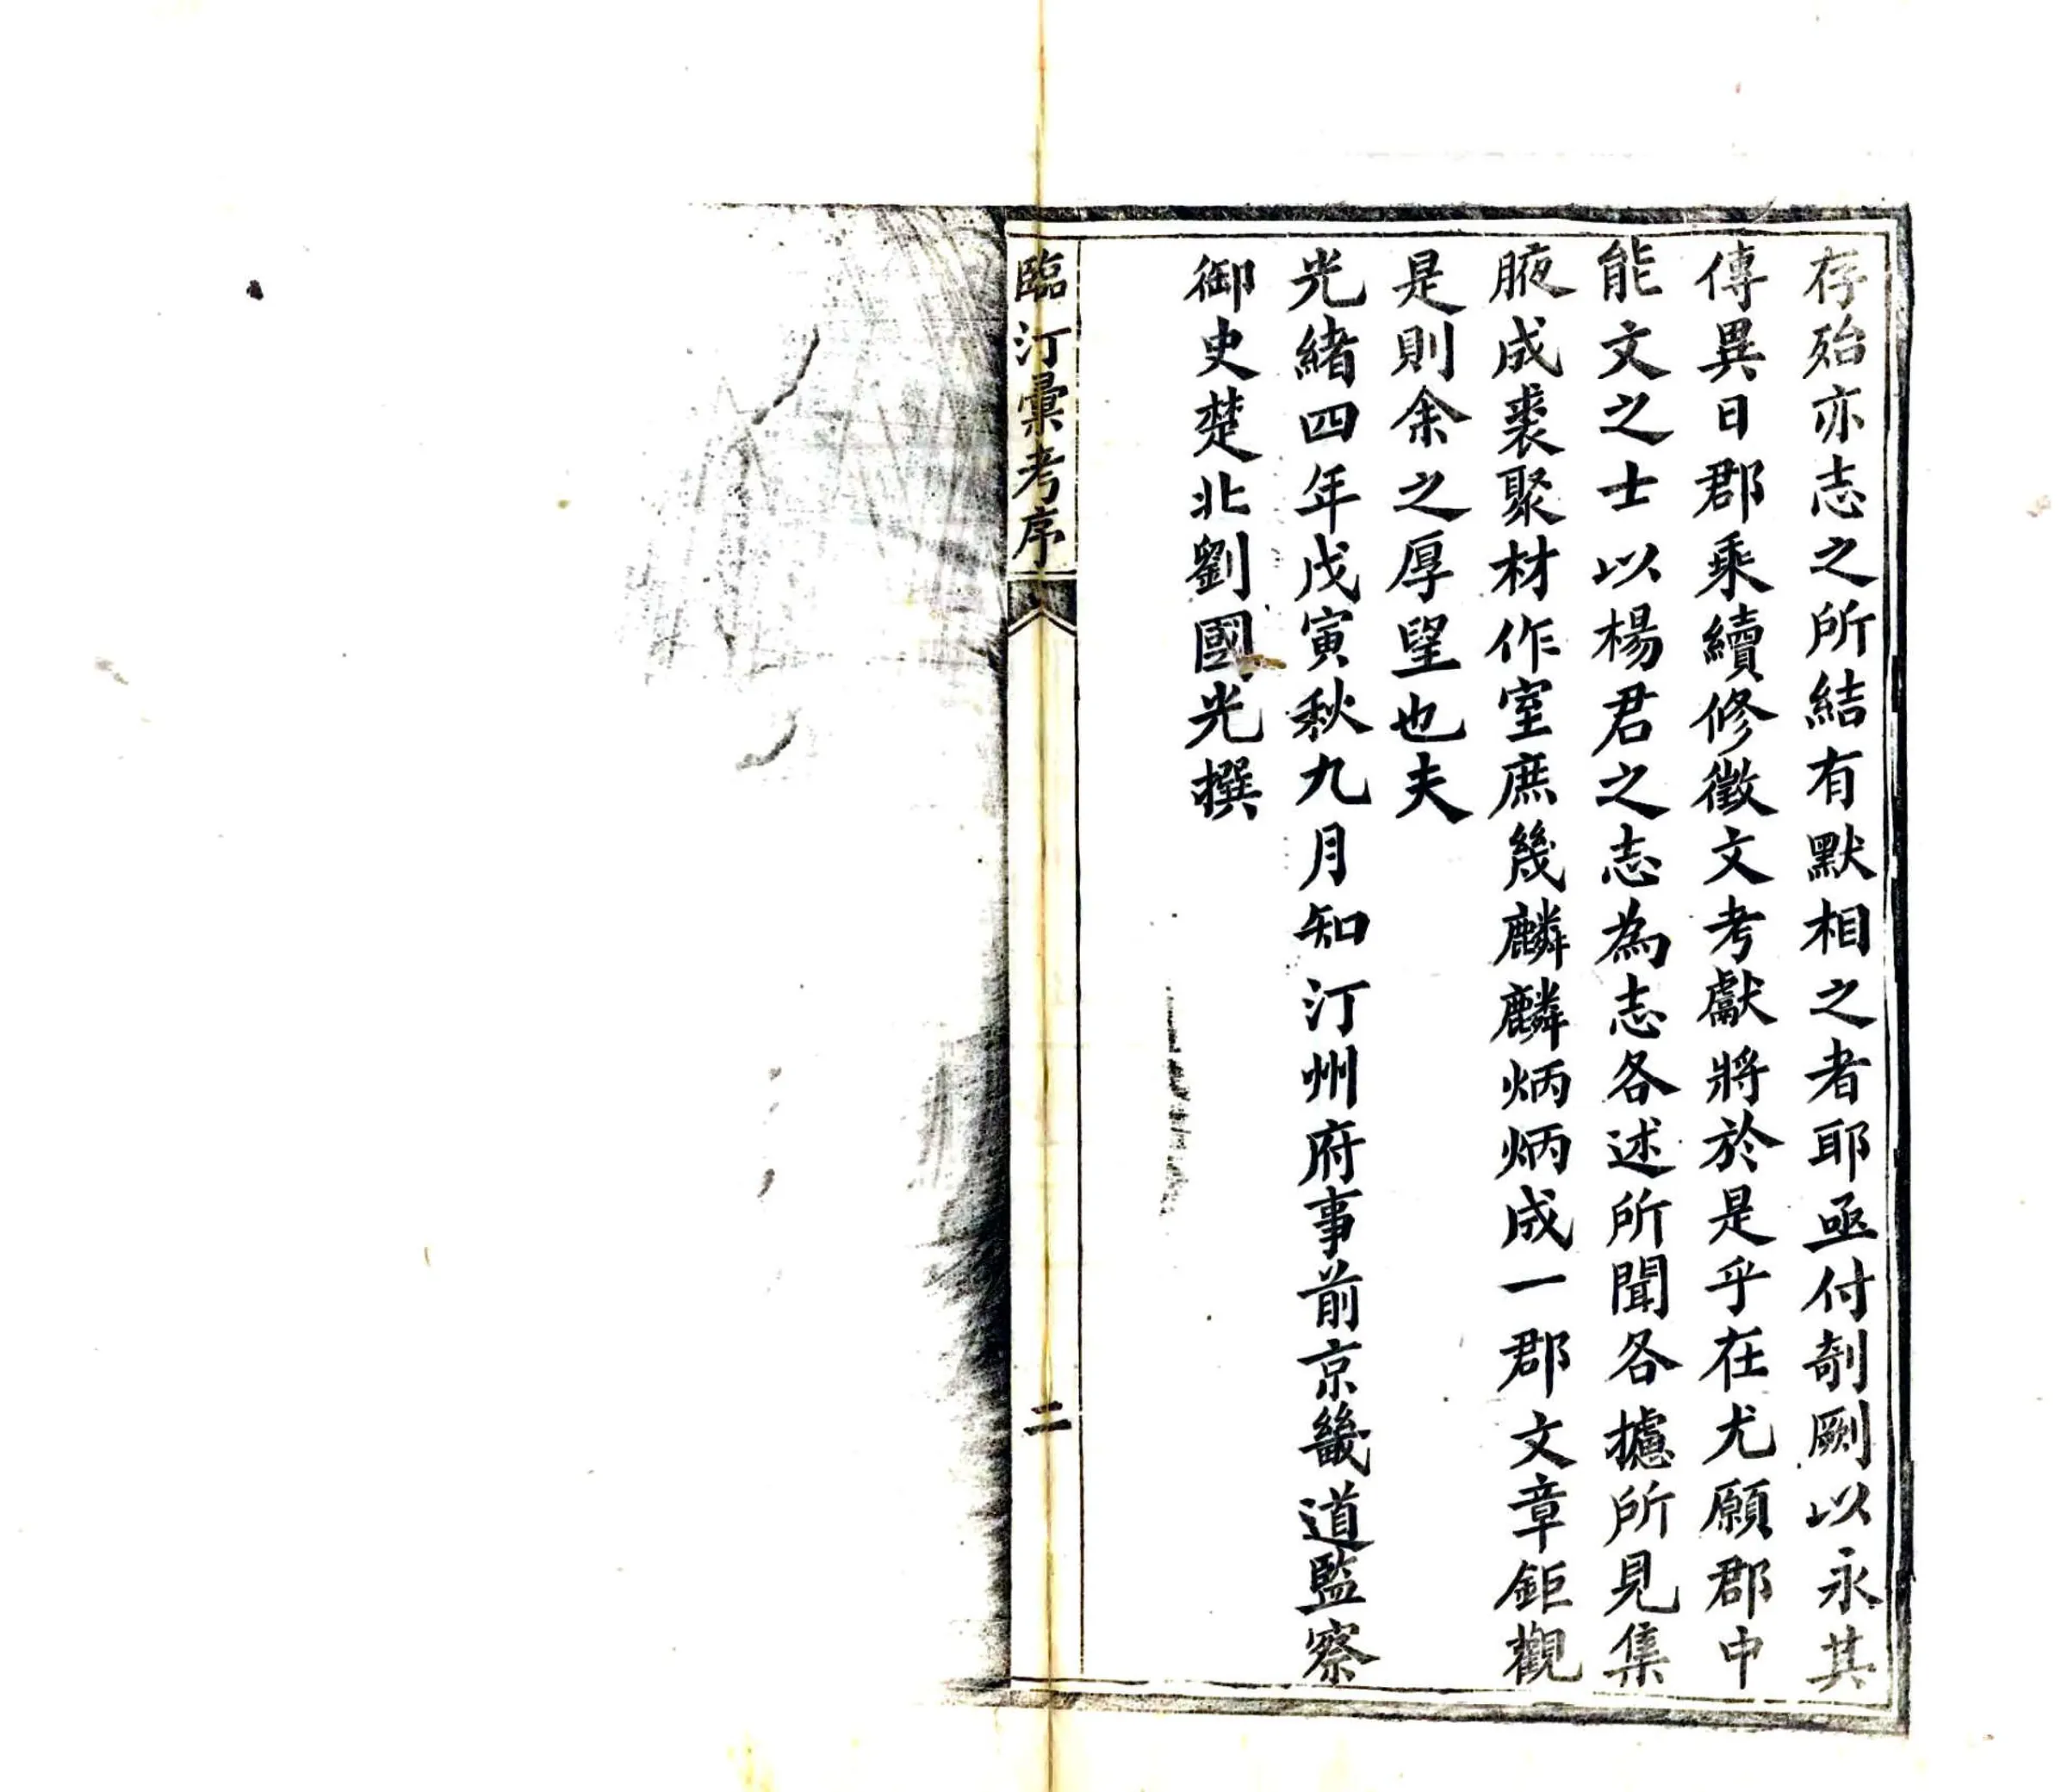 存殆亦志之所結有默相之者耶亟付剞劂以永其
傳異日郡乘續修徵文考獻將於是乎在尤願郡中
能文之士以楊君之志為志各述所聞各攄所見集
腋成裘聚材作室庶幾麟麟炳炳成一郡文章鉅觀
是則余之厚望也夫
光緒四年戊寅秋九月知汀州府事前京畿道監察
御史楚北劉國光撰
臨汀彙考序
二